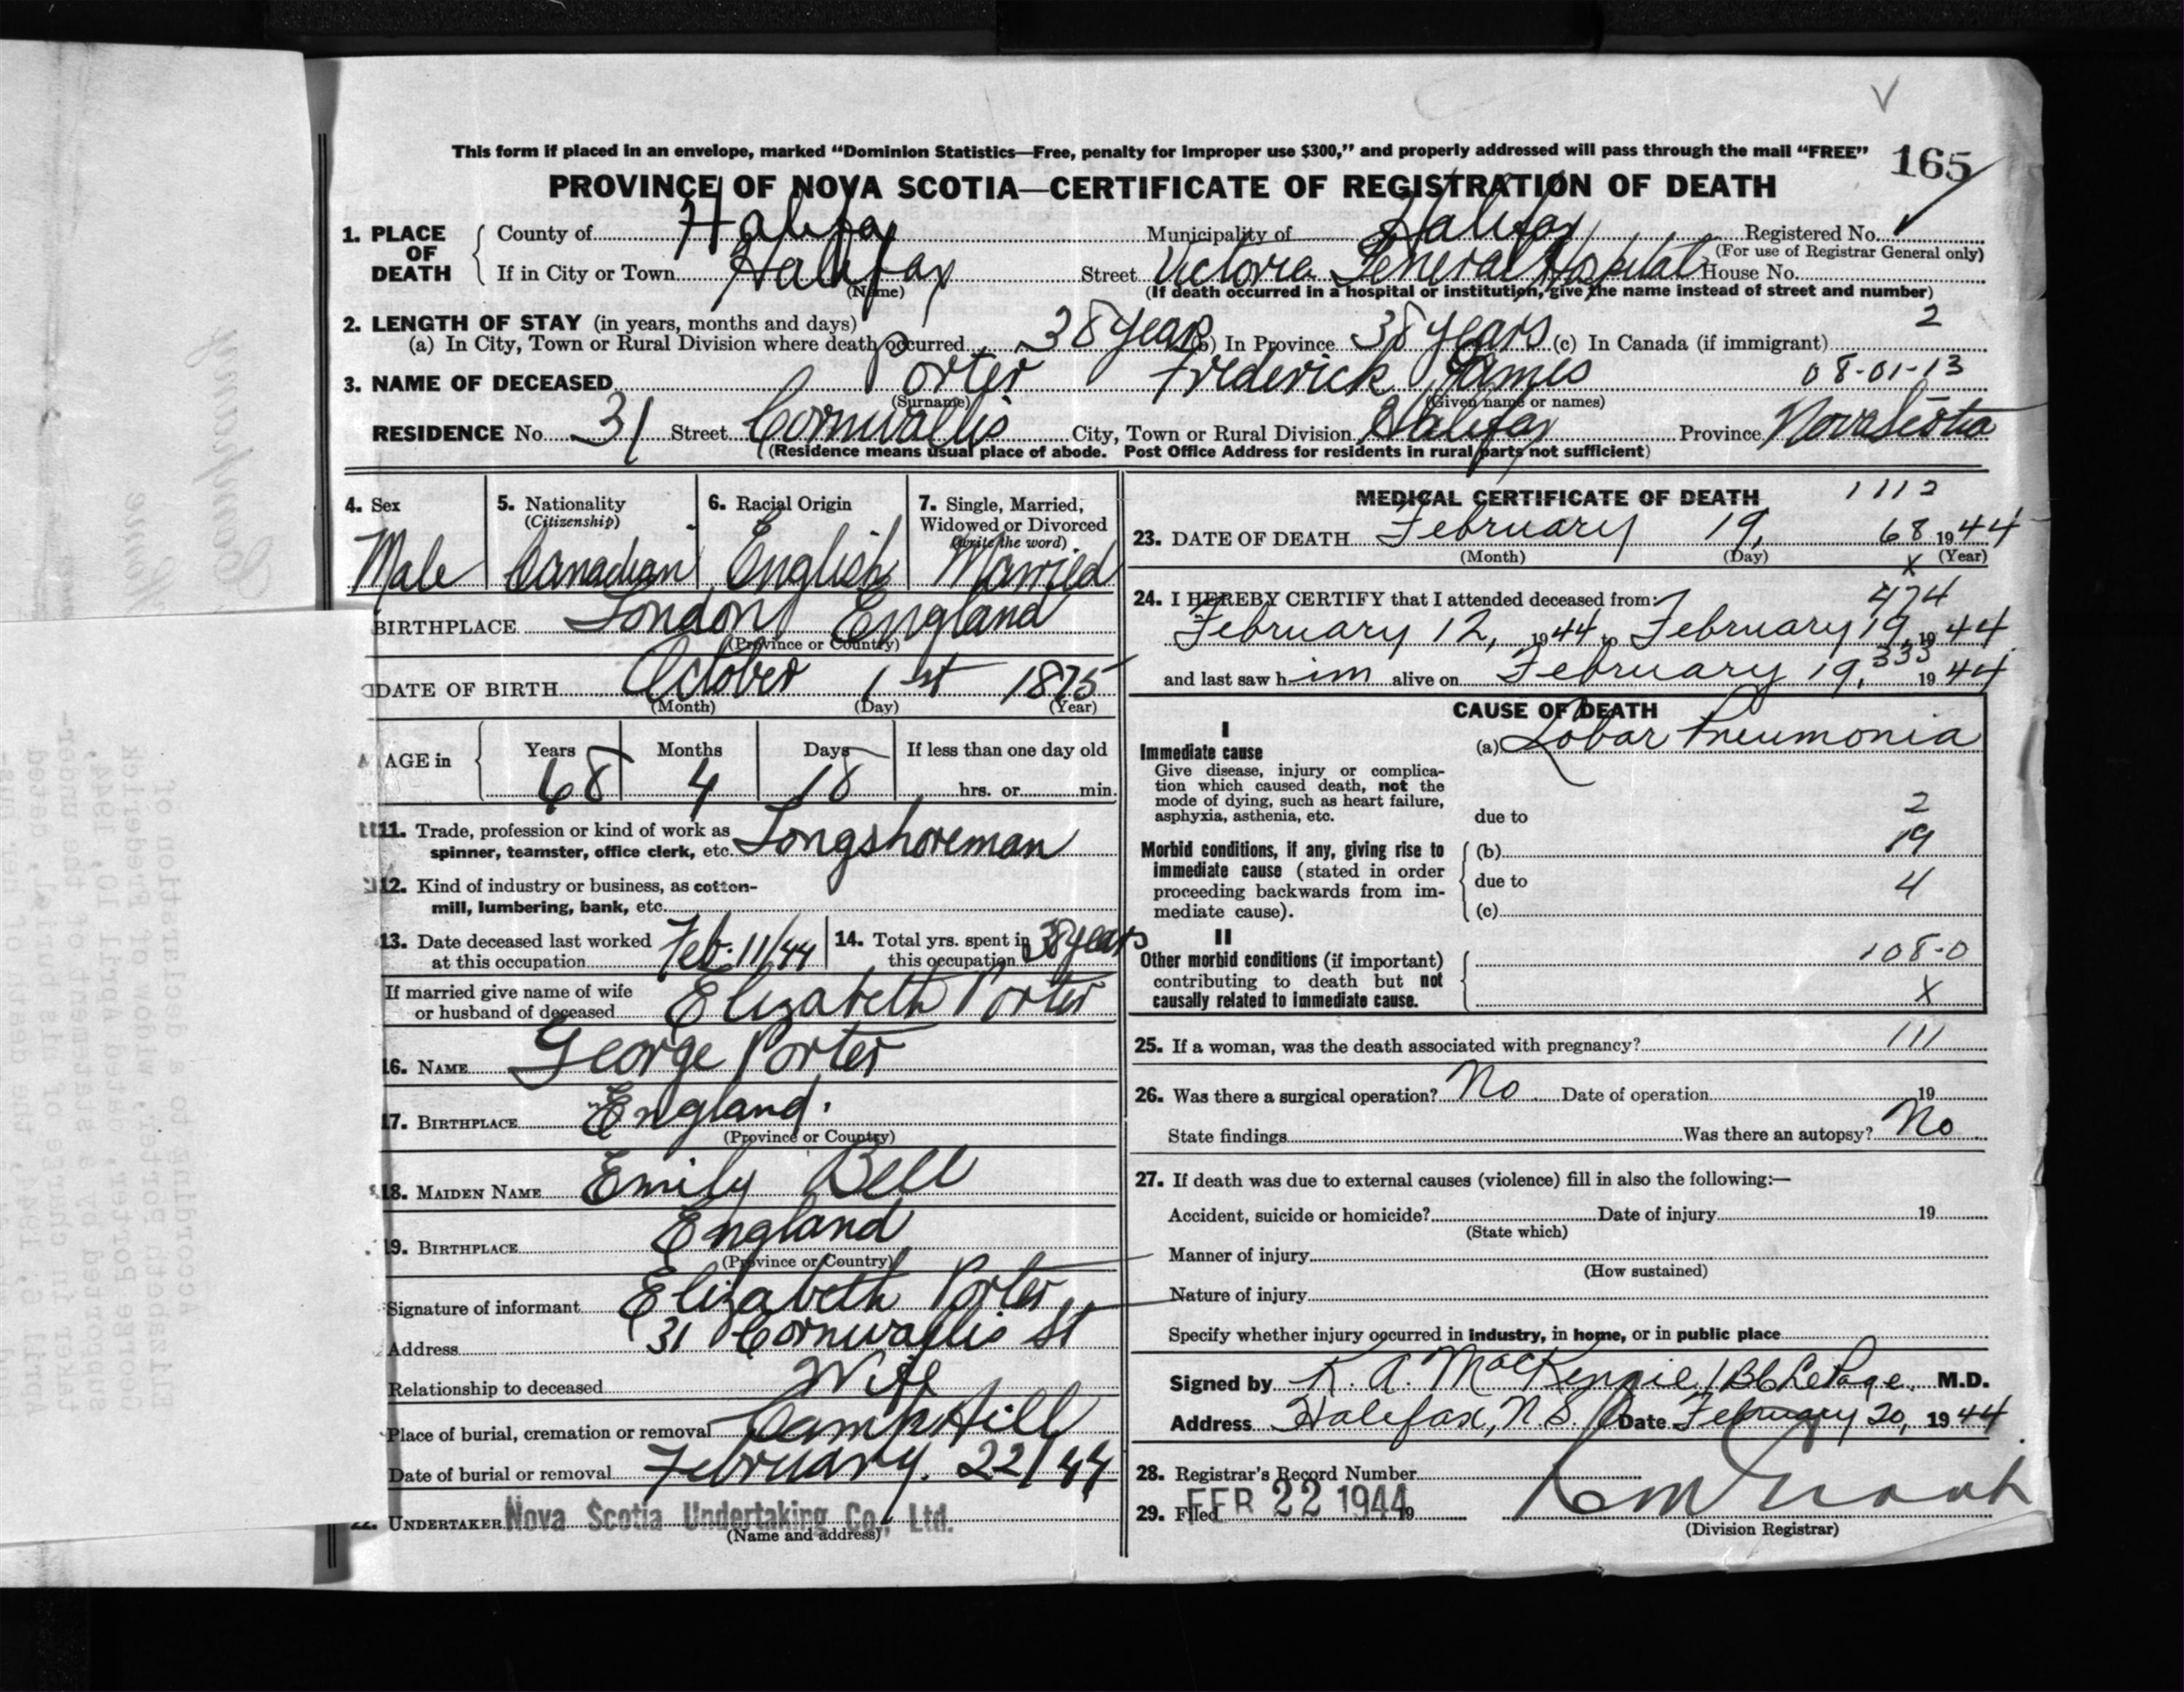 This form if placed in an envelope, marked “Dominion Statistics—Free, penalty for improper use $300,” and properly addressed will pass through the mail “FREE”
165
PROVINCE OF NOVA SCOTIA—CERTIFICATE OF REGISTRATION OF DEATH
1. PLACE OF DEATH
County of Halifax Municipality of Halifax Registered No.
(For use of Registrar General only)
If in City or Town Halifax Street Victoria General Hospital House No.
(Name) (If death occurred in a hospital or institution, give the name instead of street and number)
2. LENGTH OF STAY (in years, months and days) 2
(a) In City, Town or Rural Division where death occurred 38 years (b) In Province 38 years (c) In Canada (if immigrant)
3. NAME OF DECEASED Porter Frederick James 08-01-13
(Surname) (Given name or names)
RESIDENCE No. 31 Street Cornwallis City, Town or Rural Division Halifax Province Nova Scotia
(Residence means usual place of abode. Post Office Address for residents in rural parts not sufficient)
4. Sex Male
5. Nationality (Citizenship) Canadian
6. Racial Origin English
7. Single, Married, Widowed or Divorced (write the word) Married
BIRTHPLACE London England
(Province or Country)
DATE OF BIRTH October 1st 1875
(Month) (Day) (Year)
AGE in Years 68 Months 4 Days 18 If less than one day old
hrs. or min.
11. Trade, profession or kind of work as spinner, teamster, office clerk, etc. Longshoreman
12. Kind of industry or business, as cotton-
mill, lumbering, bank, etc.
13. Date deceased last worked at this occupation Feb. 11/44
14. Total yrs. spent in this occupation 38 years
If married give name of wife or husband of deceased Elizabeth Porter
16. NAME George Porter
17. BIRTHPLACE England.
(Province or Country)
18. MAIDEN NAME Emily Bell
19. BIRTHPLACE England
(Province or Country)
Signature of informant Elizabeth Porter
Address 31 Cornwallis St
Relationship to deceased Wife
Place of burial, cremation or removal Camp Hill
Date of burial or removal February. 22/44
22. UNDERTAKER Nova Scotia Undertaking Co., Ltd.
(Name and address)
MEDICAL CERTIFICATE OF DEATH 1112
23. DATE OF DEATH February 19, 68 1944
(Month) (Day) x (Year)
24. I HEREBY CERTIFY that I attended deceased from: 474
February 12, 1944 to February 19, 1944
333
and last saw him alive on February 19, 1944
CAUSE OF DEATH
I
Immediate cause (a) Lobar Pneumonia
Give disease, injury or complica-
tion which caused death, not the
mode of dying, such as heart failure,
asphyxia, asthenia, etc. due to 2
Morbid conditions, if any, giving rise to (b) 19
immediate cause (stated in order
proceeding backwards from im- due to 4
mediate cause). (c)
II
Other morbid conditions (if important) 108-0
contributing to death but not
causally related to immediate cause. x
25. If a woman, was the death associated with pregnancy? 111
26. Was there a surgical operation? No Date of operation 19
State findings Was there an autopsy? No
27. If death was due to external causes (violence) fill in also the following:—
Accident, suicide or homicide? Date of injury 19
(State which)
Manner of injury
(How sustained)
Nature of injury
Specify whether injury occurred in industry, in home, or in public place
Signed by K. A. MacKenzie / B C LePage M.D.
Address Halifax, N.S. Date February 20, 1944
28. Registrar's Record Number
29. Filed FEB 22 1944 19
(Division Registrar)